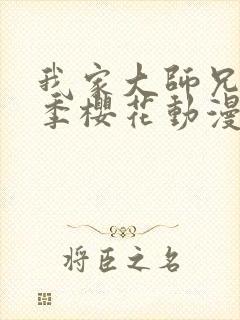 我家大師兄
季櫻花動漫
將臣之名